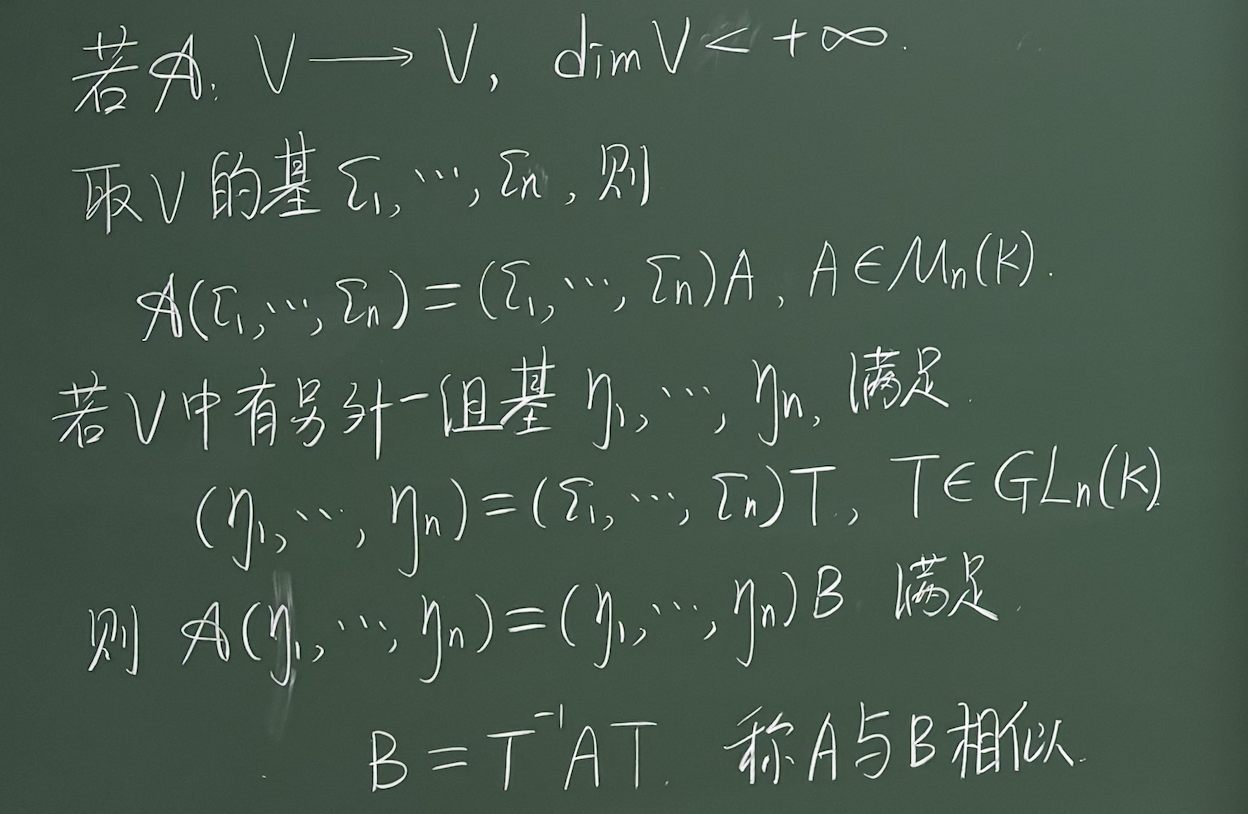 若𝒜: V → V, dim V < +∞.
取V的基 ξ₁, ⋯, ξₙ, 则
𝒜(ξ₁, ⋯, ξₙ) = (ξ₁, ⋯, ξₙ)A, A ∈ Mₙ(K).
若V中有另外一组基 η₁, ⋯, ηₙ, 满足
(η₁, ⋯, ηₙ) = (ξ₁, ⋯, ξₙ)T, T ∈ GLₙ(K)
则 𝒜(η₁, ⋯, ηₙ) = (η₁, ⋯, ηₙ)B 满足
B = T⁻¹AT. 称A与B相似.